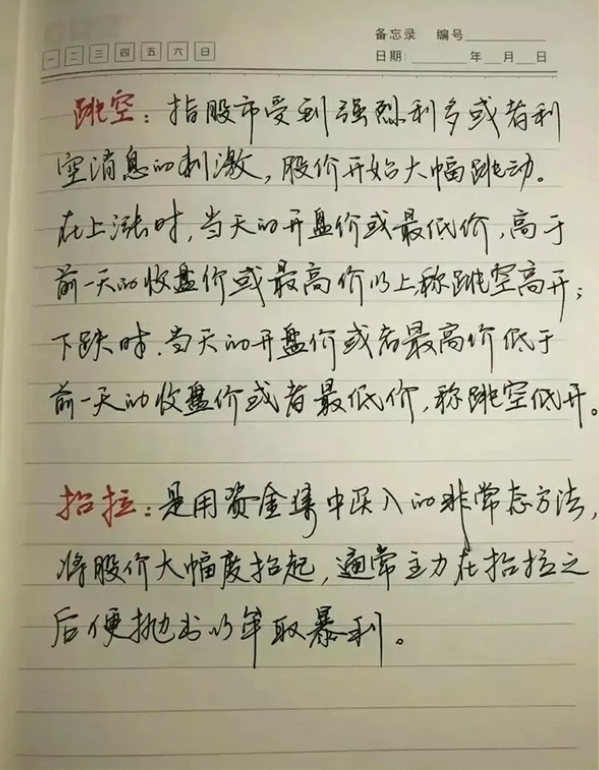 备忘录 编号
一 二 三 四 五 六 日 日期: 年 月 日
跳空：指股市受到强烈利多或者利
空消息的刺激，股价开始大幅跳动。
在上涨时，当天的开盘价或最低价，高于
前一天的收盘价或最高价以上，称跳空高开；
下跌时，当天的开盘价或者最高价低于
前一天的收盘价或者最低价，称跳空低开。
抬拉：是用资金集中买入的非常态方法，
将股价大幅度抬起，通常主力在抬拉之
后便抛出以牟取暴利。